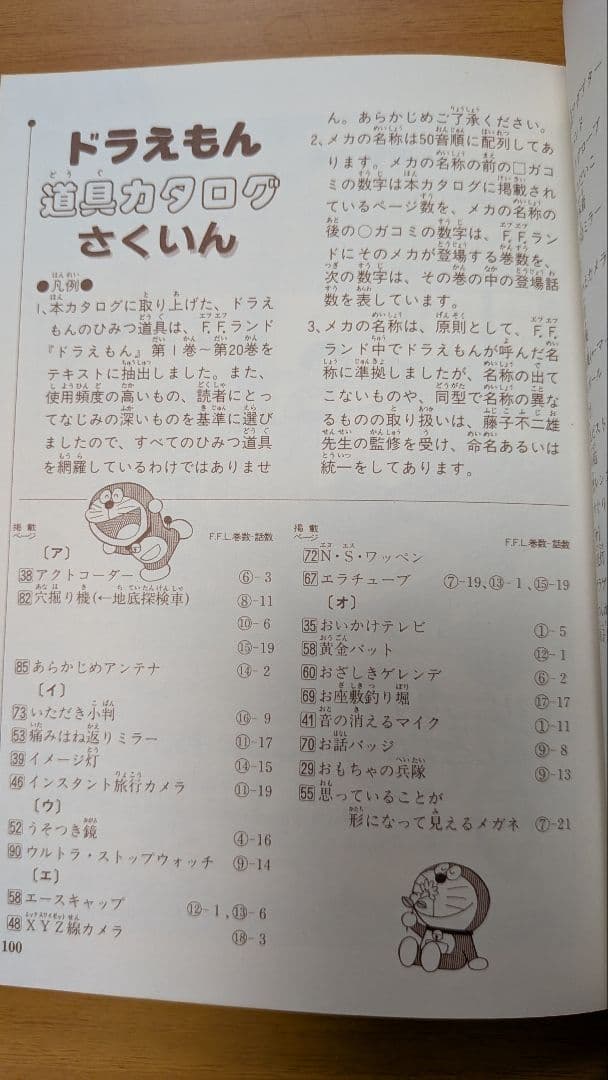 ドラえもん
道具カタログ
さくいん
●凡例●
1、本カタログに取り上げた、ドラえ
もんのひみつ道具は、F.F.ランド
『ドラえもん』第1巻〜第20巻を
テキストに抽出しました。また、
使用頻度の高いもの、読者にとっ
てなじみの深いものを基準に選び
ましたので、すべてのひみつ道具
を網羅しているわけではありませ
ん。あらかじめご了承ください。
2、メカの名称は50音順に配列してあ
ります。メカの名称の前の□ガコ
ミの数字は本カタログに掲載され
ているページ数を、メカの名称の
後の○ガコミの数字は、F.F.ラン
ドにそのメカが登場する巻数を、
次の数字は、その巻の中の登場話
数を表しています。
3、メカの名称は、原則として、F.F.
ランド中でドラえもんが呼んだ名
称に準拠しましたが、名称の出て
こないものや、同型で名称の異な
るものの取り扱いは、藤子不二雄
先生の監修を受け、命名あるいは
統一をしてあります。
掲載ページ F.F.L.巻数-話数
〔ア〕
38 アクトコーダー ⑥-3
82 穴掘り機(←地底探検車) ⑧-11
⑩-6
⑮-19
85 あらかじめアンテナ ⑭-2
〔イ〕
73 いただき小判 ⑯-9
53 痛みはね返りミラー ⑪-17
39 イメージ灯 ⑭-15
46 インスタント旅行カメラ ⑪-19
〔ウ〕
52 うそつき鏡 ④-16
90 ウルトラ・ストップウォッチ ⑨-14
〔エ〕
58 エースキャップ ⑫-1、⑬-6
48 XYZ線カメラ ⑱-3
100
掲載ページ F.F.L.巻数-話数
72 N・S・ワッペン
67 エラチューブ ⑦-19、⑬-1、⑮-19
〔オ〕
35 おいかけテレビ ①-5
58 黄金バット ⑫-1
60 おざしきゲレンデ ⑥-2
69 お座敷釣り堀 ⑰-17
41 音の消えるマイク ①-11
70 お話バッジ ⑨-8
29 おもちゃの兵隊 ⑨-13
55 思っていることが
形になって見えるメガネ ⑦-21